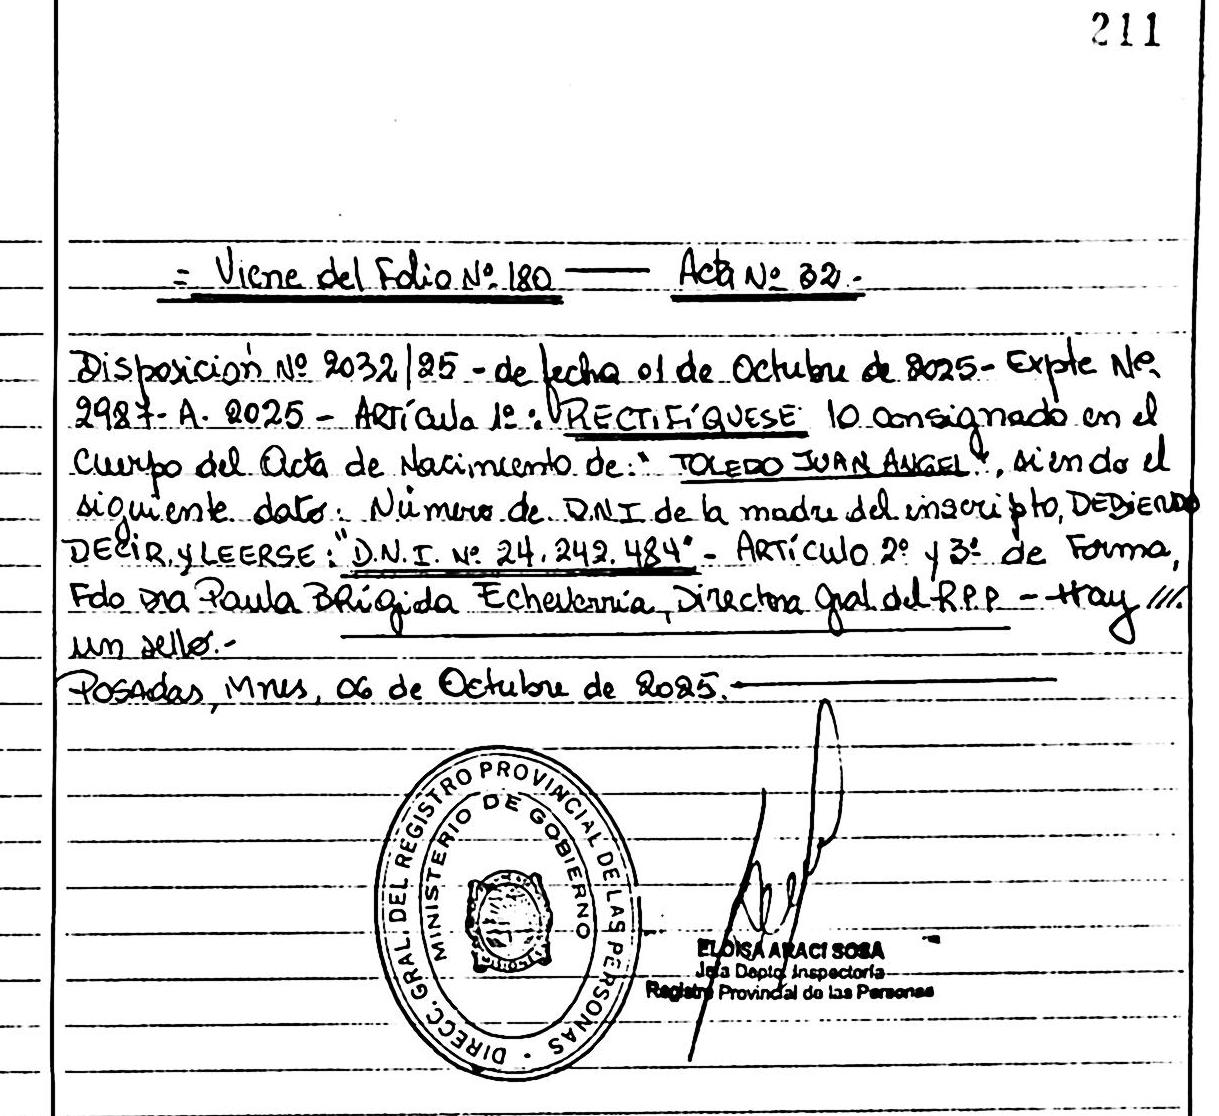 211
= Viene del Folio Nº 180 —— Acta Nº 32.-
Disposición Nº 2032/25 - de fecha 01 de Octubre de 2025- Expte Nº
2987-A-2025 - ARTÍCULO 1º: RECTIFÍQUESE lo consignado en el
Cuerpo del Acta de Nacimiento de: "TOLEDO JUAN ANGEL", siendo el
siguiente dato: Número de D.N.I de la madre del inscripto, DEBIENDO
DECIR, y LEERSE: "D.N.I. Nº 24.242.484" - ARTÍCULO 2º y 3º de Forma,
Fdo Dra Paula BRígida Echeverría, Directora Gral del R.P.P - Hay ///.
un sello.-
POSAdas, Mnes, 06 de Octubre de 2025.
DIRECC. GRAL. DEL REGISTRO PROVINCIAL DE LAS PERSONAS
MINISTERIO DE GOBIERNO
ELOISA ARACI SOSA
Jefa Depto. Inspectoría
Registro Provincial de las Personas